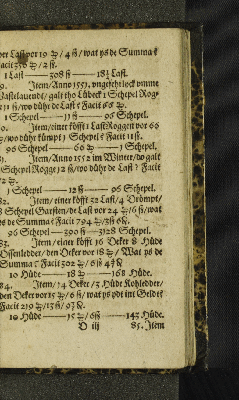 der Last vor 19 ₰ / 4 ß / wat ys de Summa
Facit 356 ₰ / 2 ß.
1 Last — 308 ß — 18½ Last.
79. Item / Anno 1551. ungefehrlick umme
Vastelauendt / galt tho Lübeck 1 Schepel Rogg
11 ß / wo dühr de Last? Facit 66 ₰.
1 Schepel — 11 ß — 96 Schepel.
80. Item / einer köfft 1 Last Roggen vor 66
₰ / wo dühr kümpt 1 Schepel? Facit 11 ß.
96 Schepel — 66 ₰ — 1 Schepel.
81. Item / Anno 1552 im Winter / do galt
Schepel Rogge 12 ß / wo dühr de Last? Facit
72 ₰.
1 Schepel — 12 ß — 96 Schepel.
82. Item / einer köfft 32 Last / 4 Drömpt /
8 Schepel Garsten / de Last vor 24 ₰ / 6 ß / wat
ys de Summa? Facit 794 ₰ /
96 Schepel — 390 ß — 3128 Schepel.
83. Item / einer köfft 16 Deker 8 Hüde
Ossenledder / den Deker vor 18 ₰ / Wat ys de
Summa? Facit 302 ₰ / 6 ß
10 Hüde — 18 ₰ — 168 Hüde.
84. Item / 14 Deker / 3 Hüde Kohledder /
den Deker vor 15 ₰ / 6 ß / wat ys ydt im Gelde?
Facit 219 ₰ / 13 ß /
10 Hüde — 15 ₰ / 6 ß — 143 Hüde.
O iij 85. Item